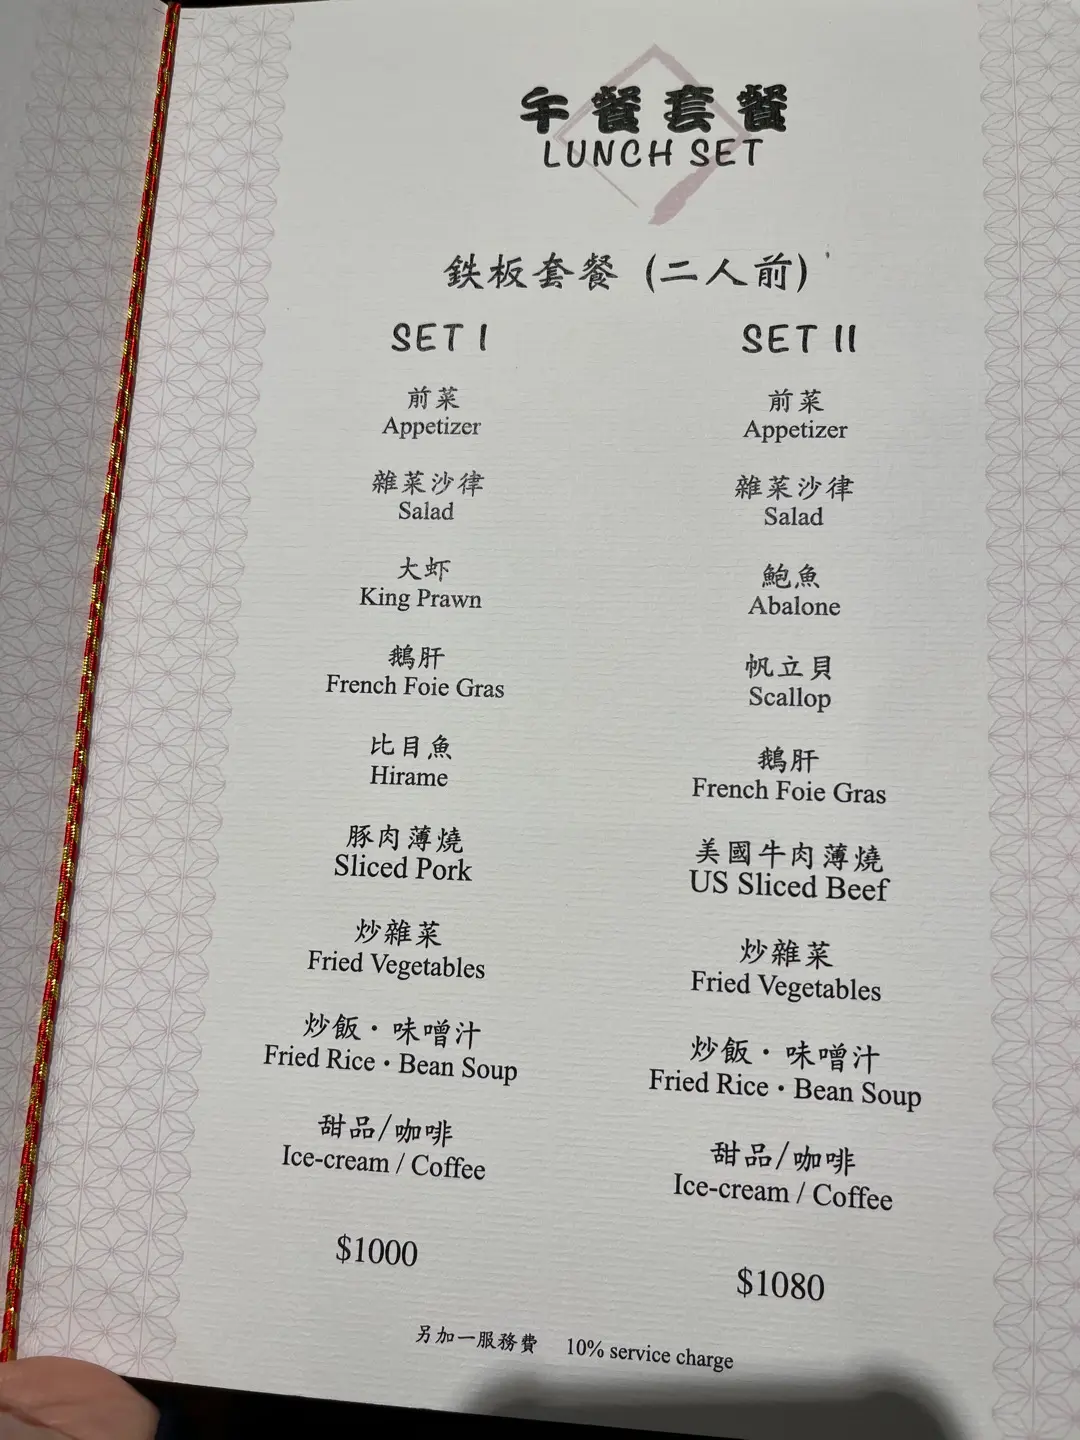 午餐套餐
LUNCH SET
鉄板套餐 (二人前)
SET I
前菜
Appetizer
雜菜沙律
Salad
大虾
King Prawn
鵝肝
French Foie Gras
比目魚
Hirame
豚肉薄燒
Sliced Pork
炒雜菜
Fried Vegetables
炒飯・味噌汁
Fried Rice・Bean Soup
甜品/咖啡
Ice-cream / Coffee
$1000
SET II
前菜
Appetizer
雜菜沙律
Salad
鮑魚
Abalone
帆立貝
Scallop
鵝肝
French Foie Gras
美國牛肉薄燒
US Sliced Beef
炒雜菜
Fried Vegetables
炒飯・味噌汁
Fried Rice・Bean Soup
甜品/咖啡
Ice-cream / Coffee
$1080
另加一服務費 10% service charge